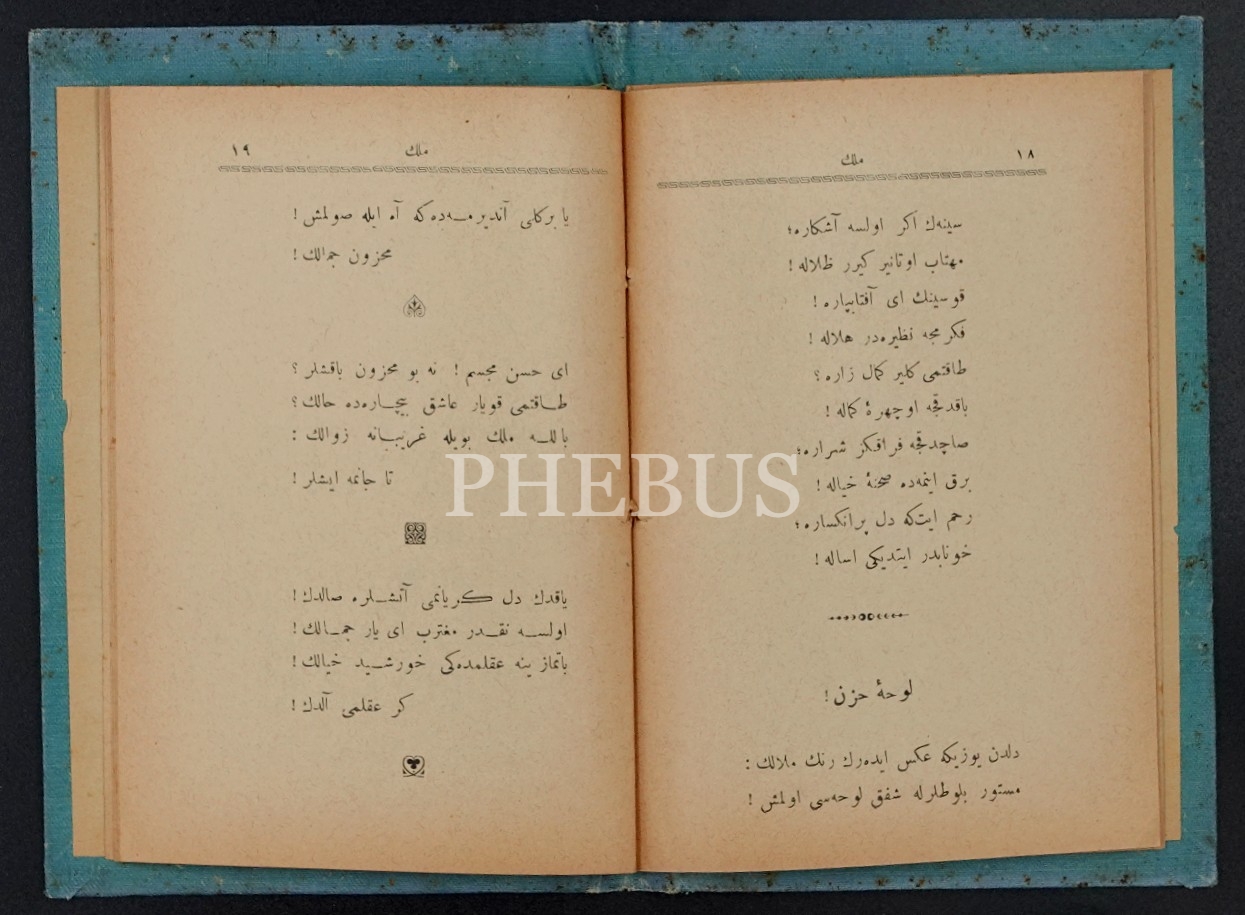 ١٨
ملك
سینەك اكر اولسه آشكاره؛
مهتاب اوتانیر كیرر ظلاله!
قوسینك ای آفتابپاره!
فكرمجه نظیره‌در هلاله!
طاقتمی كلیر كمال زاره؟
باقدقجه او چهرۀ كماله!
صاچدقجه فراقكر شراره؛
برق ایتمه‌ده صحنۀ خیاله!
رحم ایت‌كه دل پر انكساره؛
خونابدر ایتدیكی اساله!
لوحۀ حزن!
دلدن یوزیكه عكس ایده‌رك رنك ملالك:
مستور بلوطلرله شفق لوحه‌سی اولمش!
ملك
١٩
یا بركلی آندیرمه‌ده‌كه آه ایله صولمش!
محزون جمالك!
ای حسن مجسم! نه بو محزون باقشلر؟
طاقتمی قویار عاشق بیچاره‌ده حالك؟
بالله ملك بویله غریبانه زوالك:
تا جانمه ایشلر!
یاقدك دل كریانمی آتشلره صالدك!
اولسه نقدر مغترب ای یار جمالك!
باتماز ینه عقلمده‌كی خورشید خیالك!
كر عقلمی آلدك!
PHEBUS